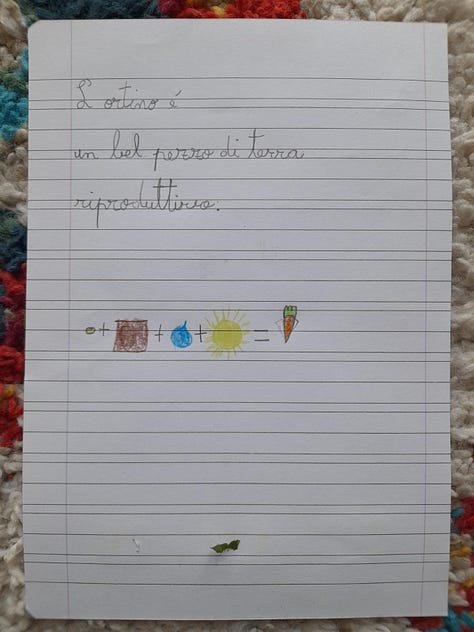 L'ortino é
un bel pezzo di terra
riproduttivo.
+ + + =